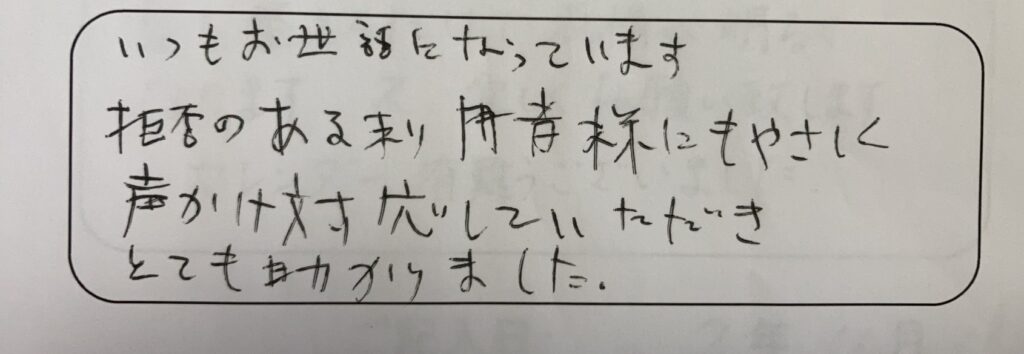 いつもお世話になっています
拒否のある利用者様にもやさしく
声かけ対応していただき
とても助かりました.